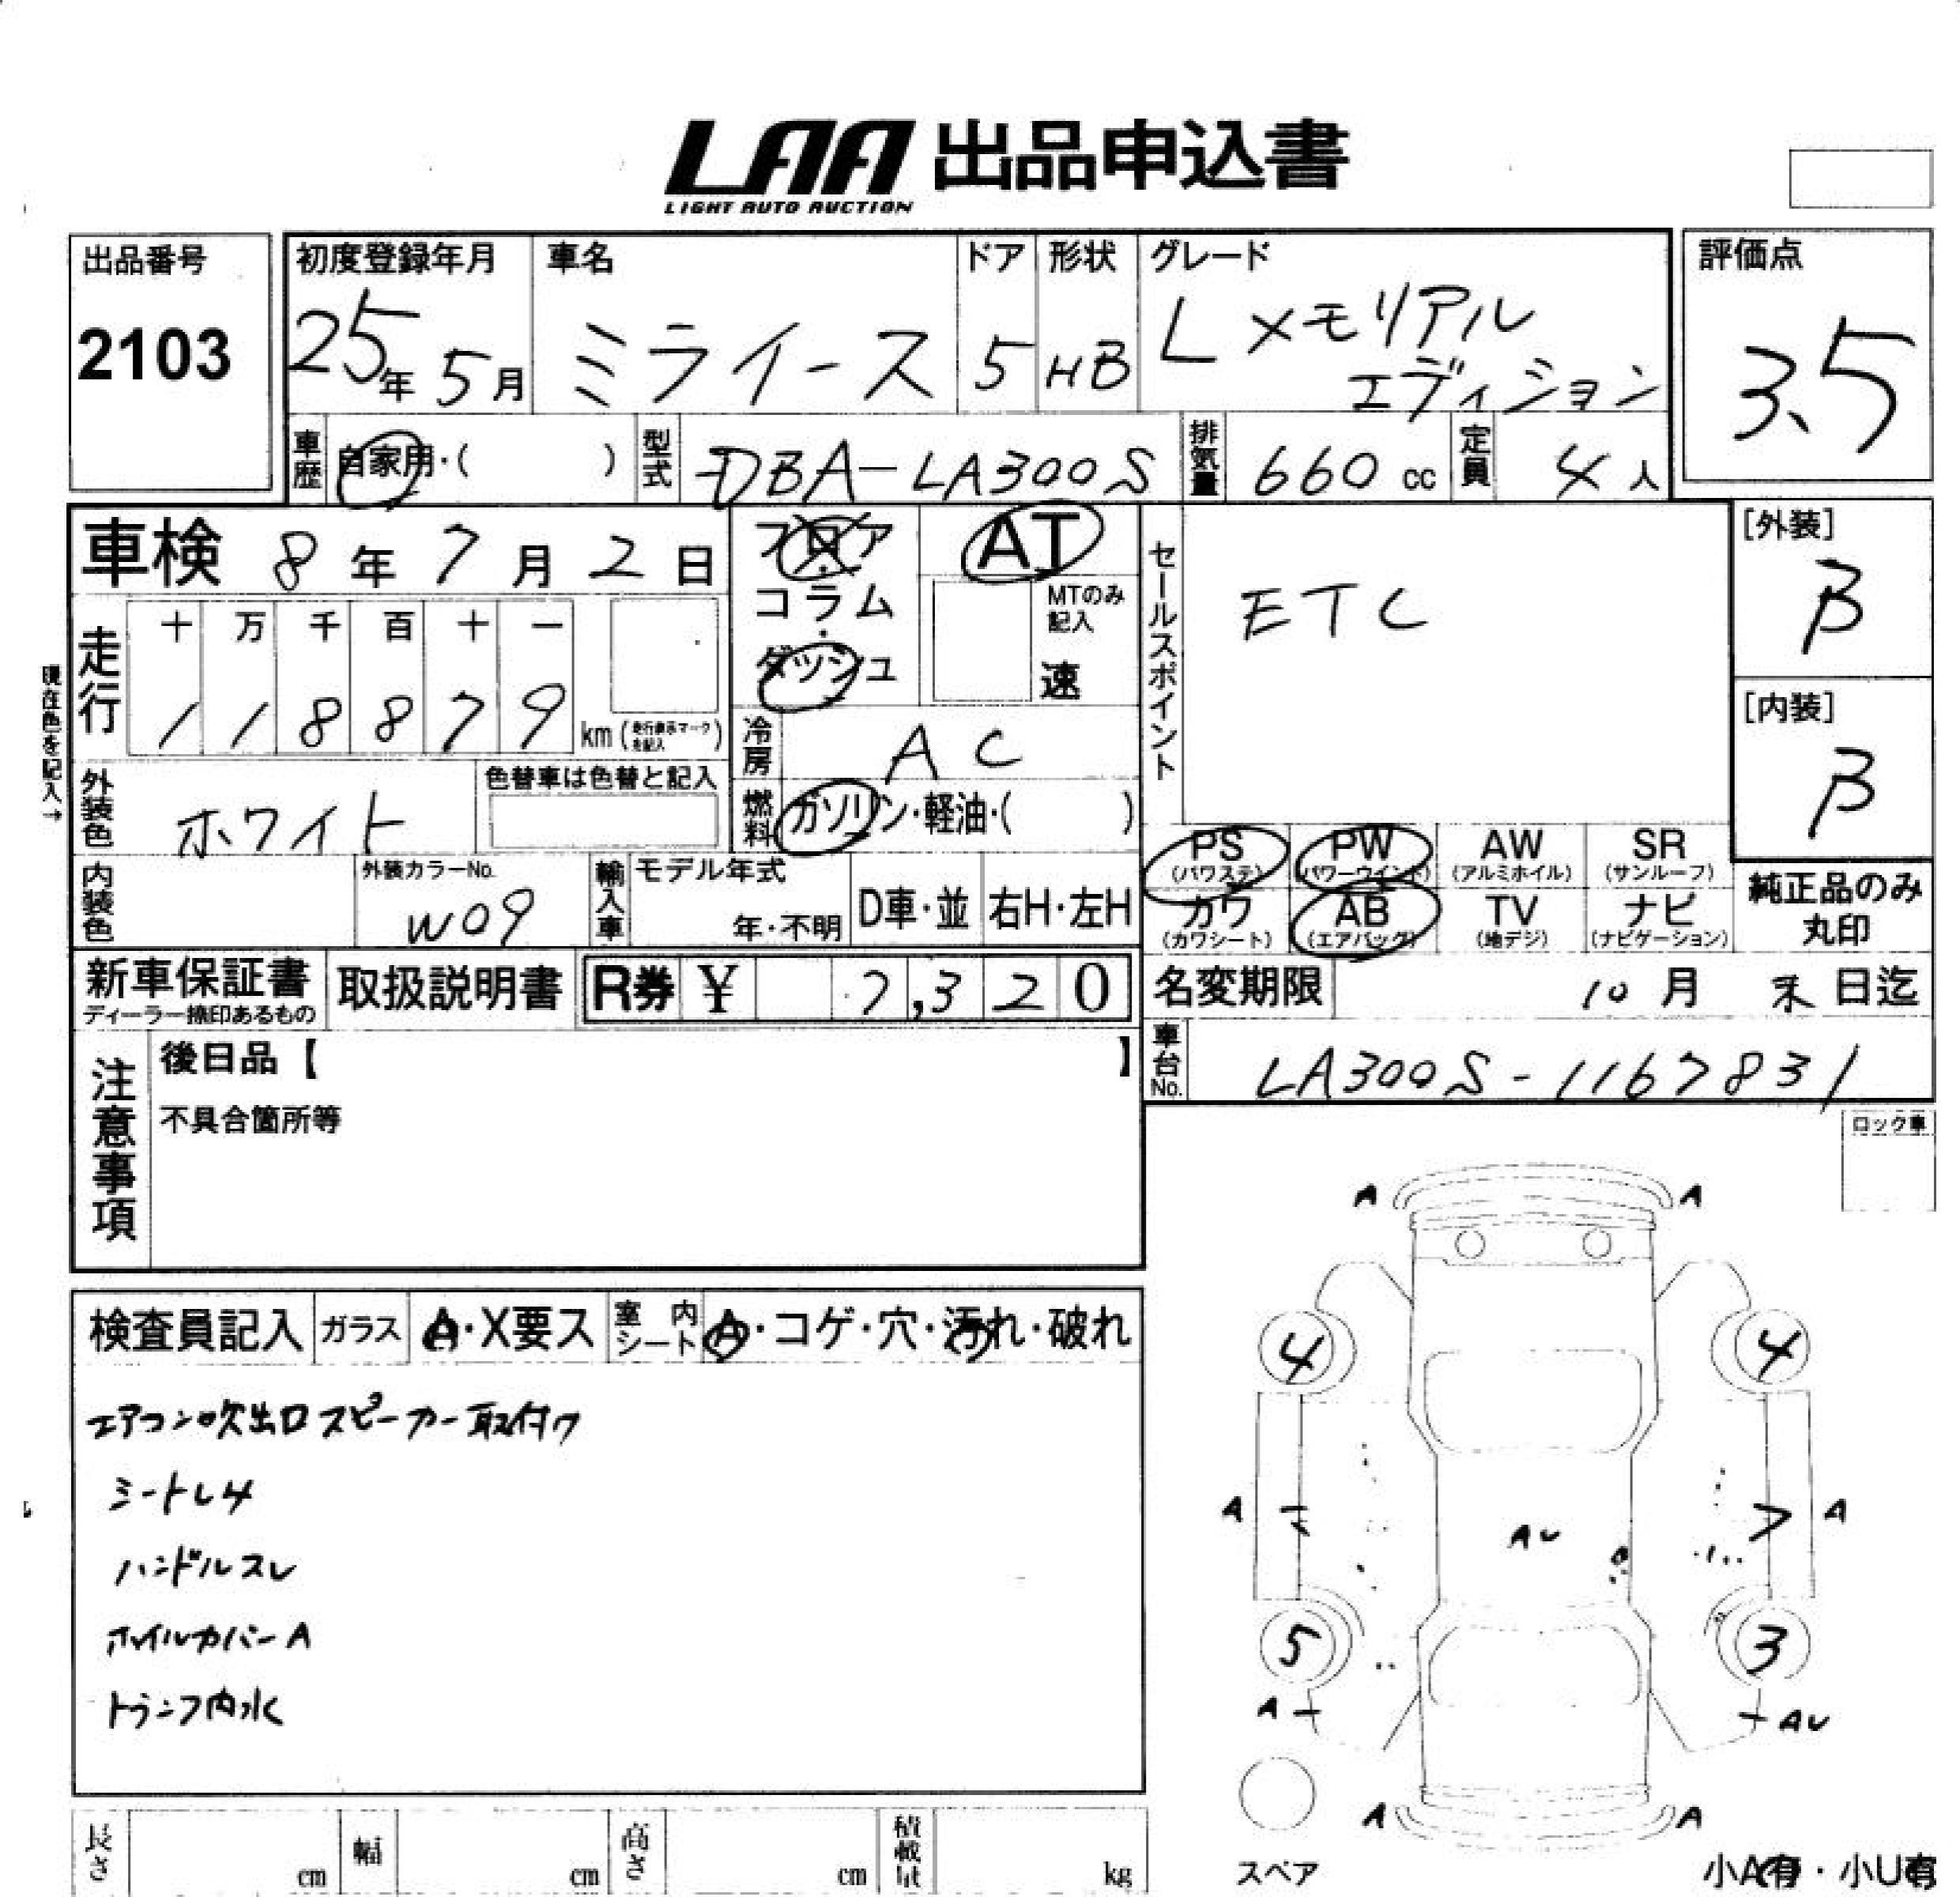 LAA 出品申込書
LIGHT AUTO AUCTION
出品番号
2103
初度登録年月
25年 5月
車名
ミライース
ドア
5
形状
HB
グレード
L メモリアル
エディション
評価点
3.5
車歴 自家用・( )
型式 DBA-LA300S
排気量 660 cc
定員 4人
車検 8年 7月 2日
フロア・コラム・ダッシュ
AT
MTのみ記入
速
セールスポイント
ETC
[外装]
β
[内装]
β
現在色を記入→
走行
十 万 千 百 十 一
1 1 8 8 7 9 km (走行表示マークを記入)
冷房 AC
外装色 ホワイト
色替車は色替と記入
燃料 ガソリン・軽油・( )
内装色
外装カラーNo.
W09
輸入車
モデル年式
年・不明
D車・並
右H・左H
PS (パワステ)
PW (パワーウインド)
AW (アルミホイル)
SR (サンルーフ)
カワ (カワシート)
AB (エアバッグ)
TV (地デジ)
ナビ (ナビゲーション)
純正品のみ
丸印
新車保証書
ディーラー捺印あるもの
取扱説明書
R券 ¥ 7,320
名変期限 10月 末日迄
車台No. LA300S-1167831
注意事項
後日品【 】
不具合箇所等
ロック車
検査員記入
ガラス A・X要ス
室内シート A・コゲ・穴・汚れ・破れ
エアコン吹出口スピーカー取付ケ
シートレ4
ハンドルスレ
ホイルカバーA
トランク内水
A A
4 4
A AU A
5 3
A AU
A A
スペア
小A有・小U有
長さ cm
幅 cm
高さ cm
積載量 kg